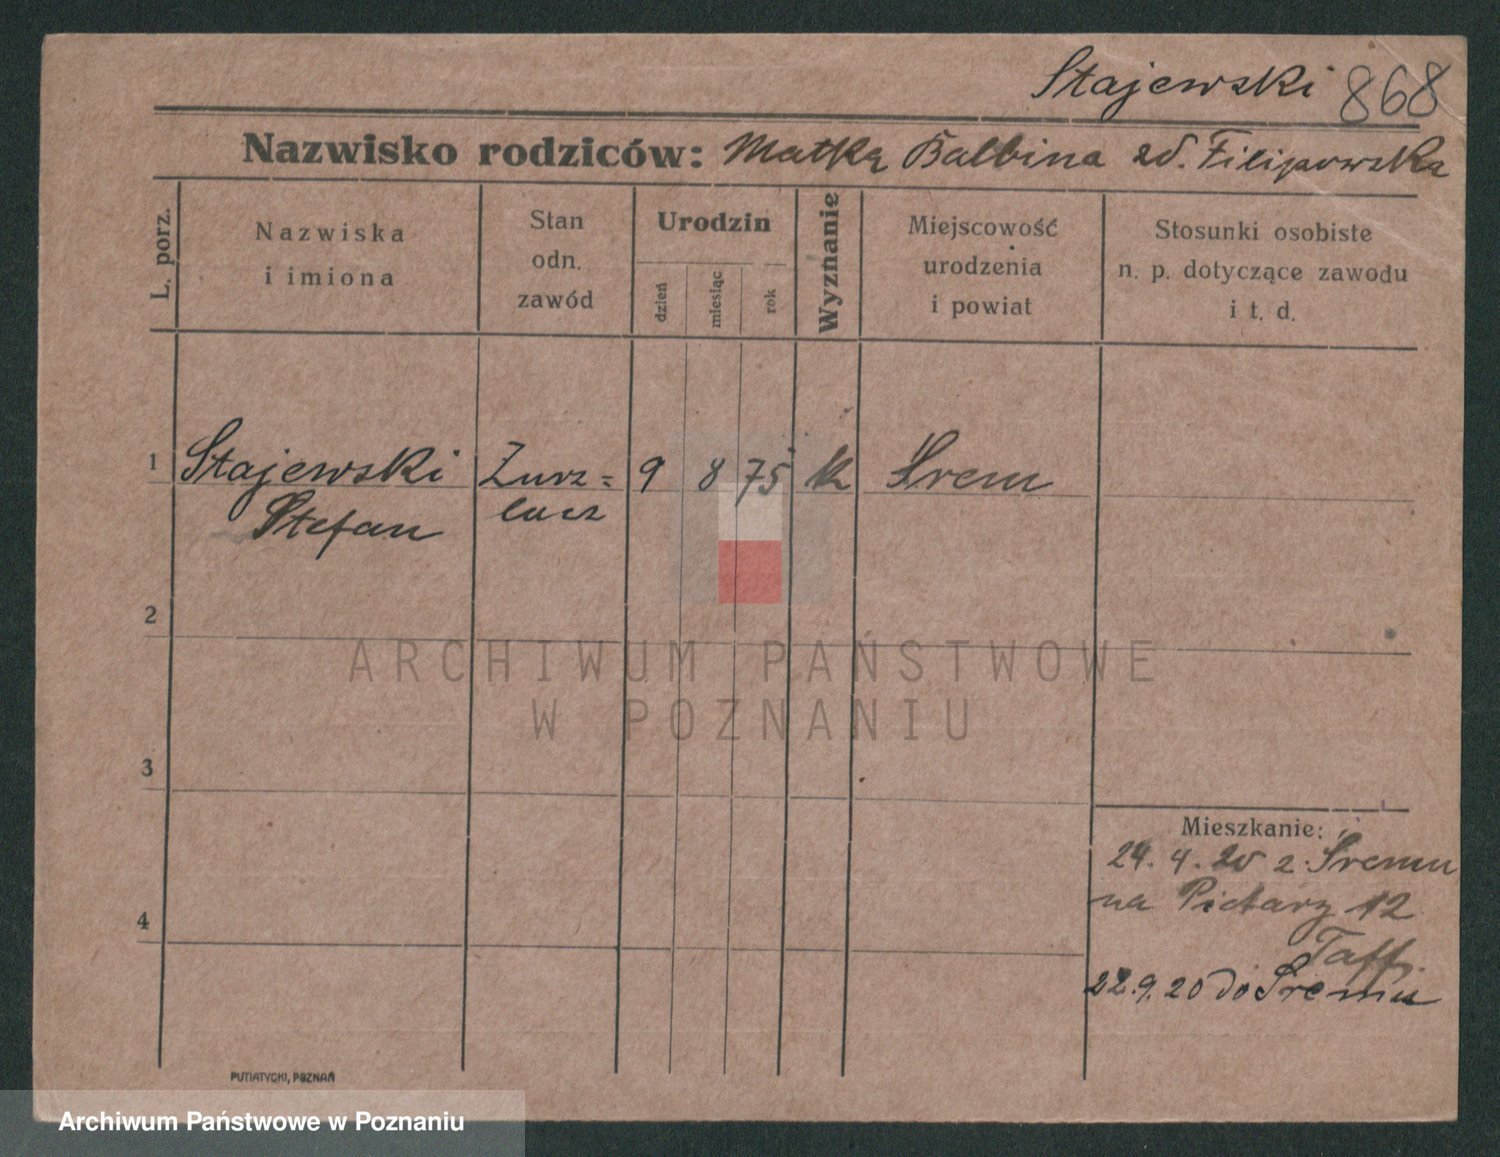 Stajewski 868
Nazwisko rodziców: Matka Balbina zd. Filipowska
L. porz.
Nazwiska
i imiona
Stan
odn.
zawód
Urodzin
dzień
miesiąc
rok
Wyznanie
Miejscowość
urodzenia
i powiat
Stosunki osobiste
n. p. dotyczące zawodu
i t. d.
1 Stajewski 9 8 75 k Śrem
Stefan
2
ARCHIWUM PAŃSTWOWE
W POZNANIU
3
Mieszkanie:
24. 4. 20 z Śremu
4
na Piekary 12
Taff.
22.9.20 do Śremu
PUTIATYCKI, POZNAŃ
Archiwum Państwowe w Poznaniu